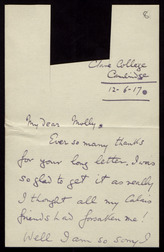 Clare College
Cambridge
12-6-17.
My dear Molly.
Ever so many thanks
for your long letter. I was
so glad to get it as really
I thought all my
friends had forsaken me!
Well I am so sorry I